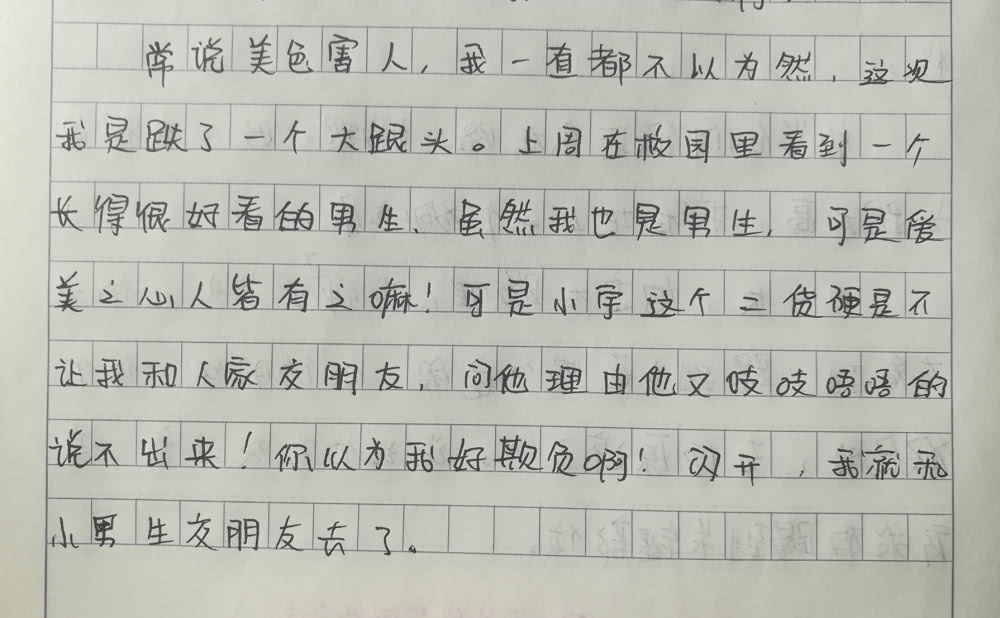 常说美色害人，我一直都不以为然，这次
我是跌了一个大跟头。上周在校园里看到一个
长得很好看的男生、虽然我也是男生，可是爱
美之心人皆有之嘛！可是小宇这个二货硬是不
让我和人家交朋友，问他理由他又吱吱唔唔的
说不出来！你以为我好欺负啊！闪开，我就和
小男生交朋友去了。